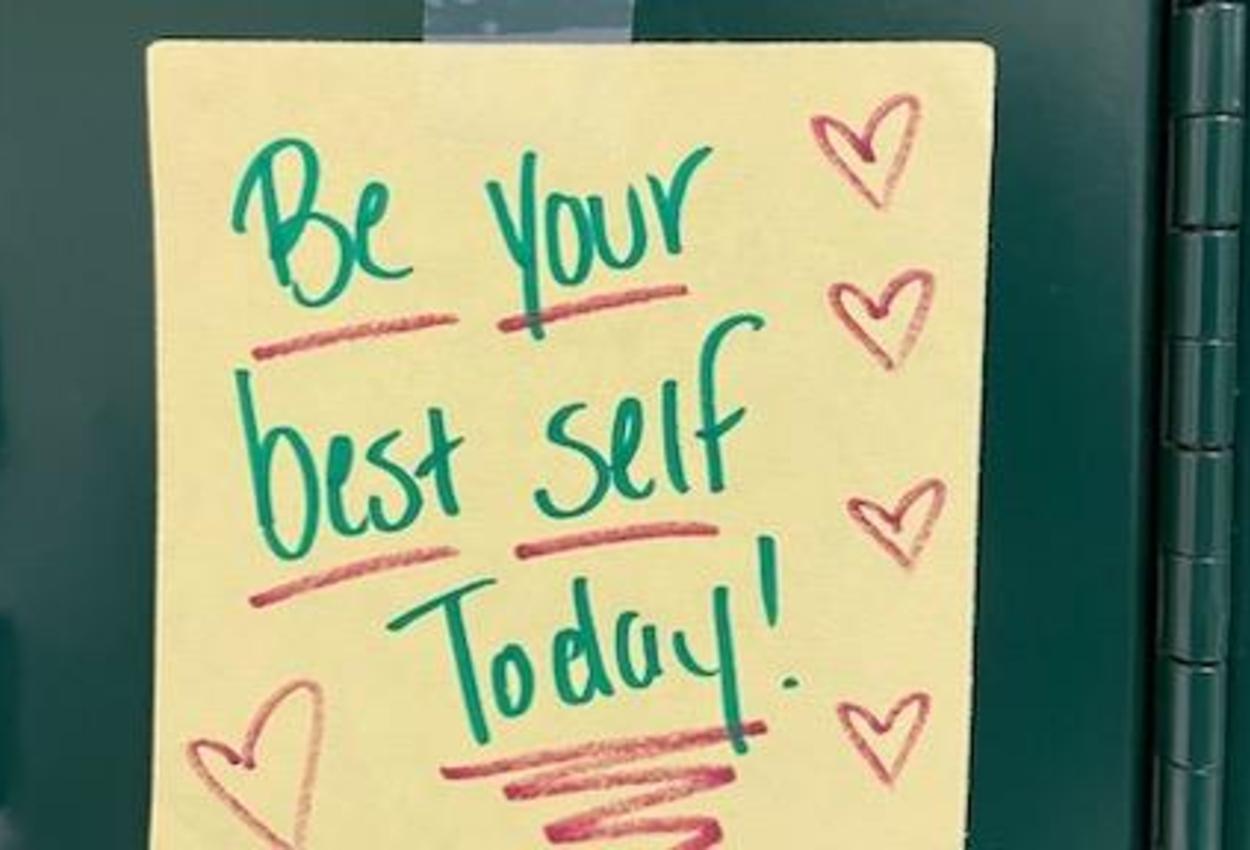 Be your
best self
Today!